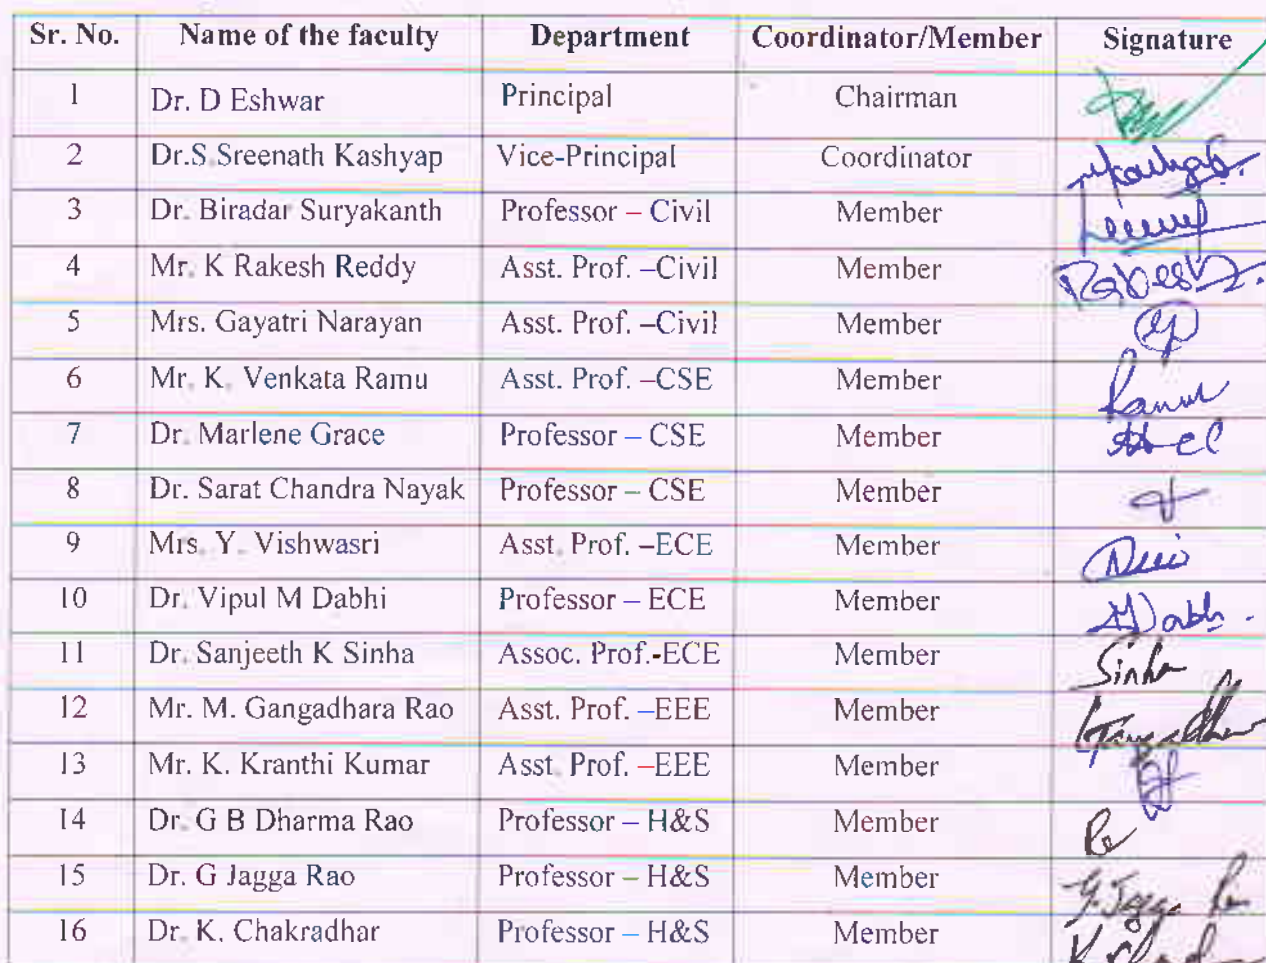 Sr. No. Name of the faculty Department Coordinator/Member Signature
1 Dr. D Eshwar Principal Chairman
2 Dr.S.Sreenath Kashyap Vice-Principal Coordinator
3 Dr. Biradar Suryakanth Professor – Civil Member
4 Mr. K Rakesh Reddy Asst. Prof. –Civil Member
5 Mrs. Gayatri Narayan Asst. Prof. –Civil Member
6 Mr. K. Venkata Ramu Asst. Prof. –CSE Member
7 Dr. Marlene Grace Professor – CSE Member
8 Dr. Sarat Chandra Nayak Professor – CSE Member
9 Mrs. Y. Vishwasri Asst. Prof. –ECE Member
10 Dr. Vipul M Dabhi Professor – ECE Member
11 Dr. Sanjeeth K Sinha Assoc. Prof.-ECE Member Sinha
12 Mr. M. Gangadhara Rao Asst. Prof. –EEE Member
13 Mr. K. Kranthi Kumar Asst. Prof. –EEE Member
14 Dr. G B Dharma Rao Professor – H&S Member
15 Dr. G Jagga Rao Professor – H&S Member
16 Dr. K. Chakradhar Professor – H&S Member